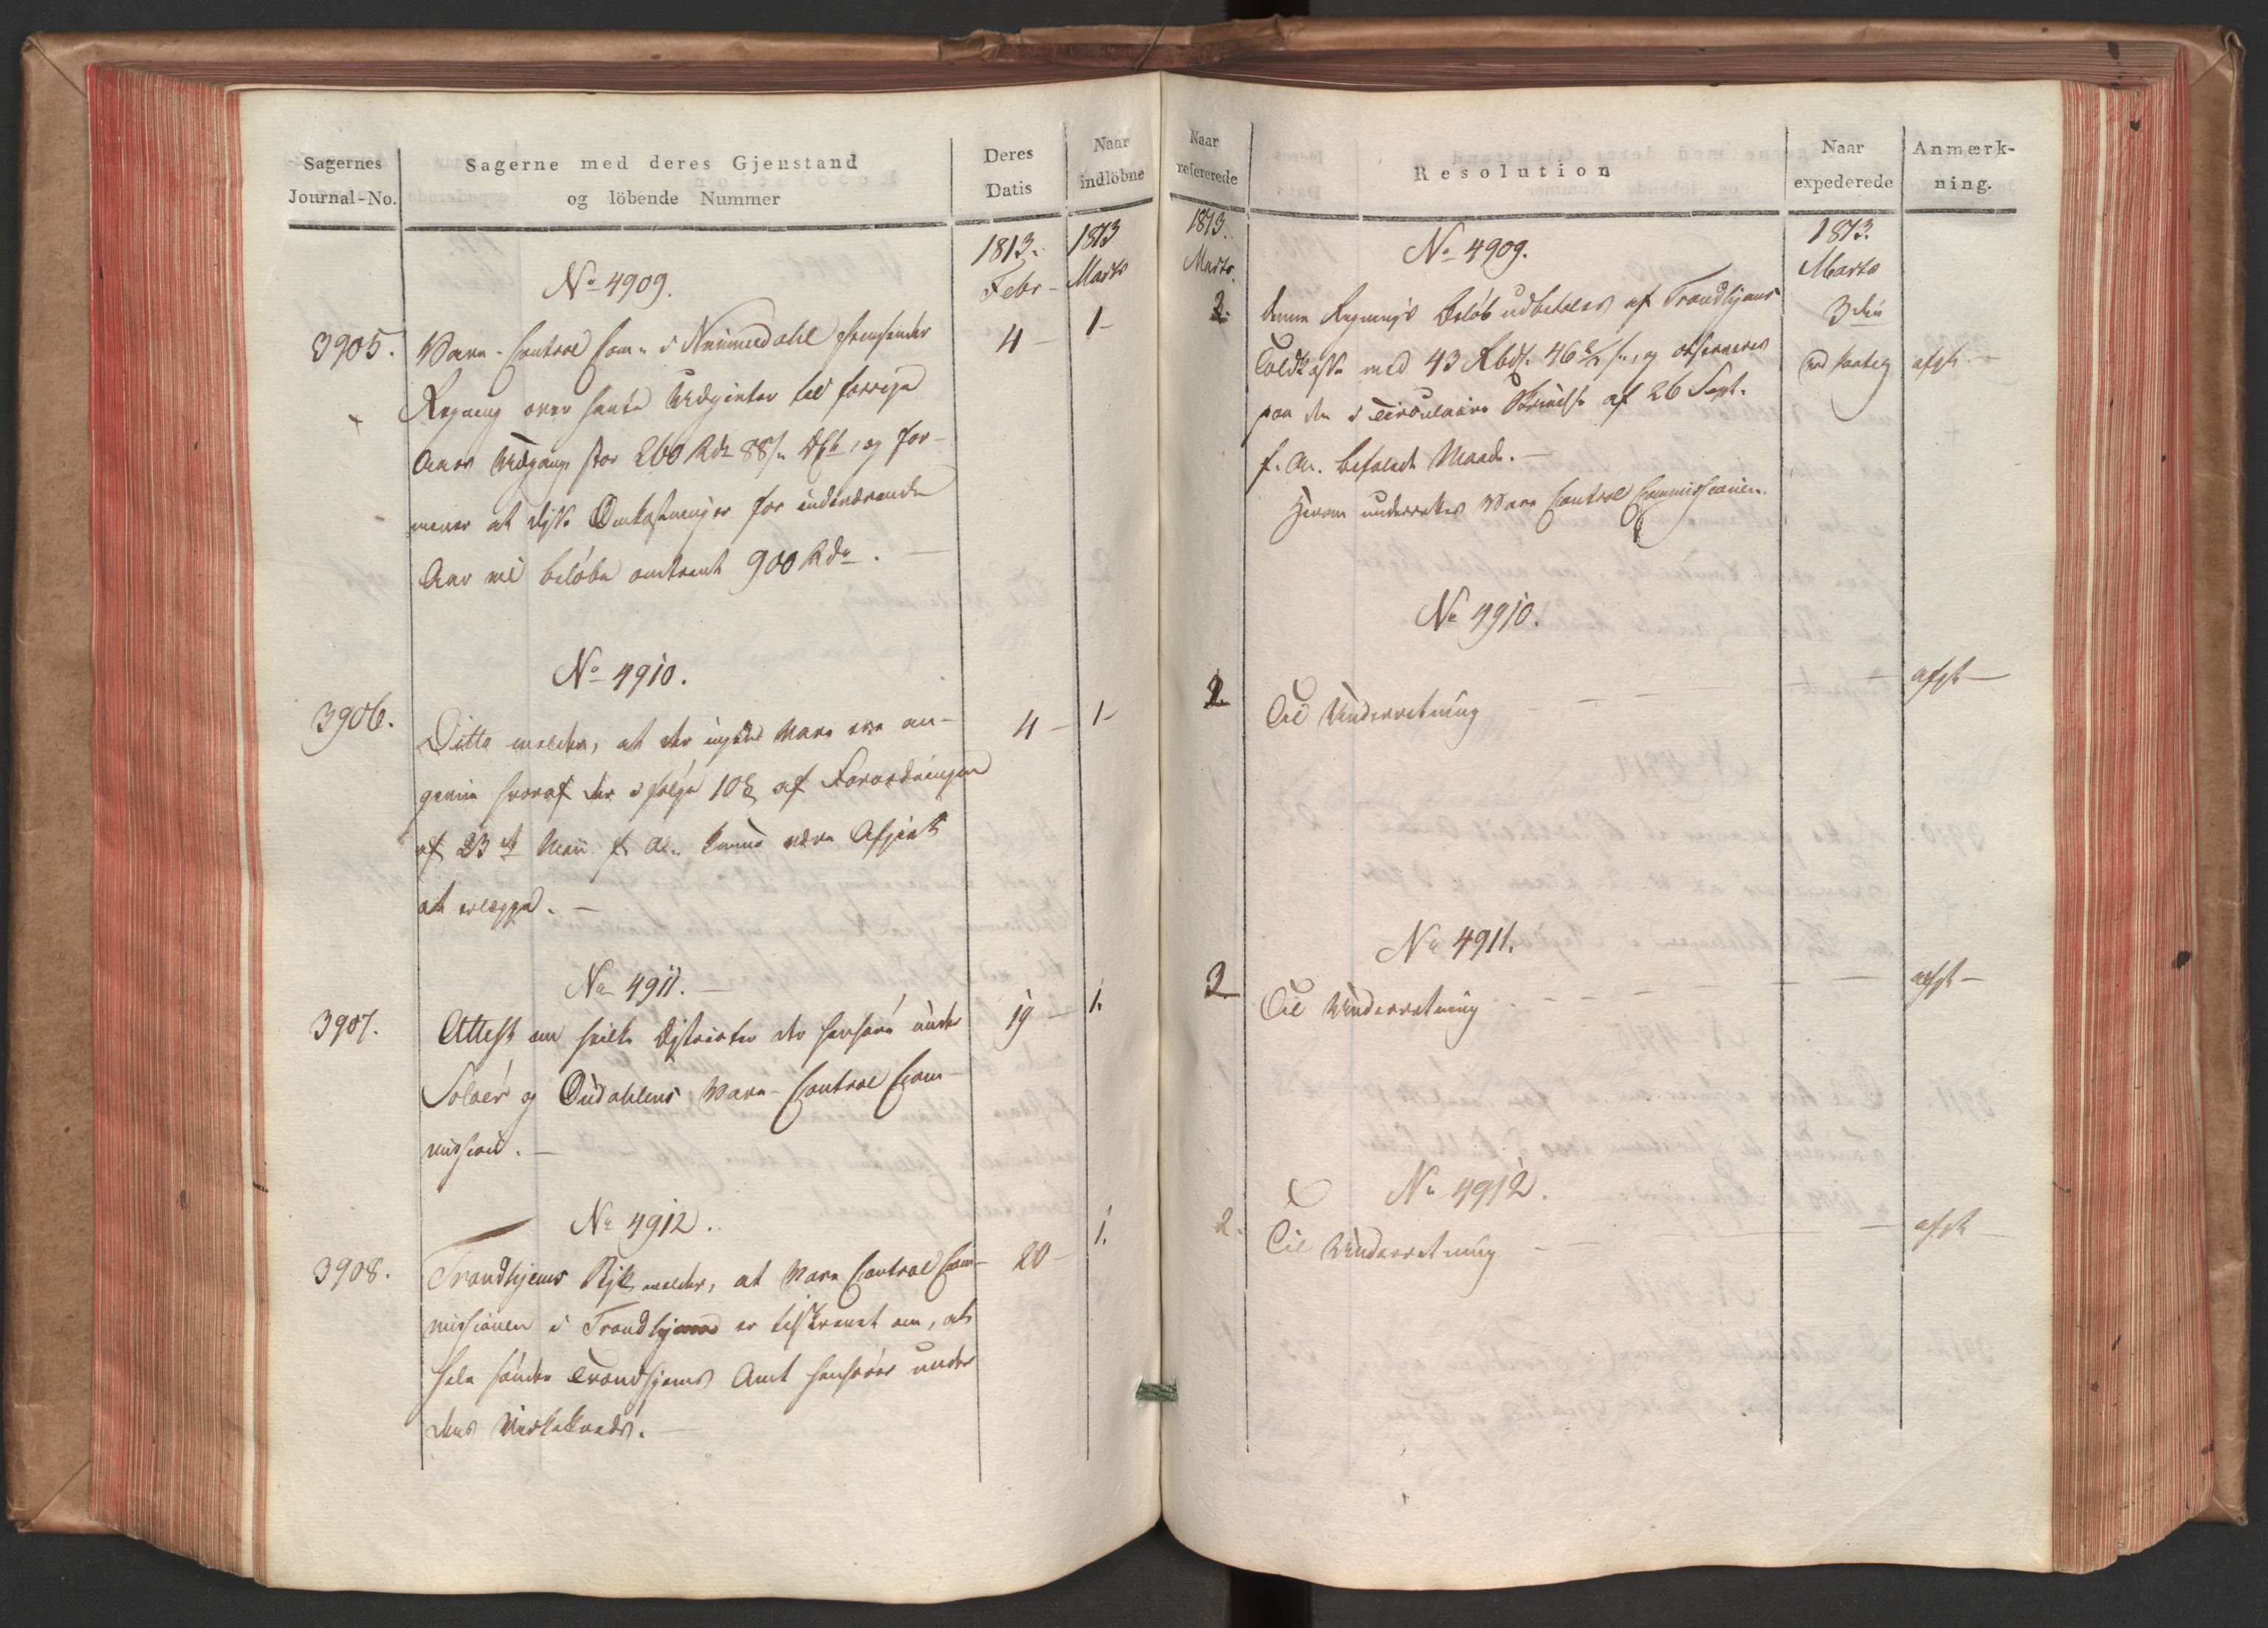 Sagernes
Journal-No.
Sagerne med deres Gjenstand
og löbende Nummer
Deres
Datis
Naar
indlöbne
1813.
Febr -
1813
Marts
No 4909.
3905.
Vare-Control Com: i Nummedahl fremsender
4 -
1 -
Regning over havte Udgivter til forrige
Aars Udgang stor 260 Rdr 88 s. DCt, og for-
mener at disse Omkostninger for indeværende
Aar vil belöbe omtrent 900 Rdr. -
No 4910.
3906.
Ditto melder, at der ingen Vare ere an-
4 -
1 -
givne hvoraf der i fölge 10 § af Forordningen
af 23 Maii f. A. kunne være Afgivt
at erlægge. -
No 4911. -
3907.
Attest om hvilke Distrikter der henhøre under
19 -
1.
Soløer og Oudahlens Vare-Control Com-
mission. -
No 4912.
3908.
Trondhjems Stift melder, at Vare Control Com-
20 -
1.
missionen i Trondhjem er tilskrevet om, at
hele söndre Trondhjems Amt henhører under
dens Virkekreds. -
Naar
refererede
Resolution
Naar
expederede
Anmærk-
ning.
1813.
Marts.
1813.
Marts
No 4909.
2.
denne Regnings Belöb udbetales af Trondhjems
3die
Toldkasse med 43 Rbd. 46 2/3 s., og observeres
ved Paateg
afgt -
paa den i Circulaire Skrivelse af 26 Sept.
f. A. befalede Maade. -
Herom underrettes Vare Control Commissionen.
No 4910.
2
Til Underretning - - - -
afgt -
No 4911.
2
Til Underretning - - - - - -
afgt -
No 4912.
2.
Til Underretning - - -
afgt